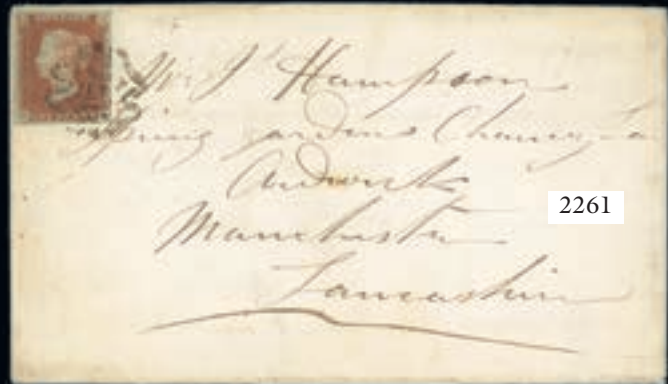 Mr J Hampson
Spring Gardens
Ardwick
Manchester
Lancashire
2261